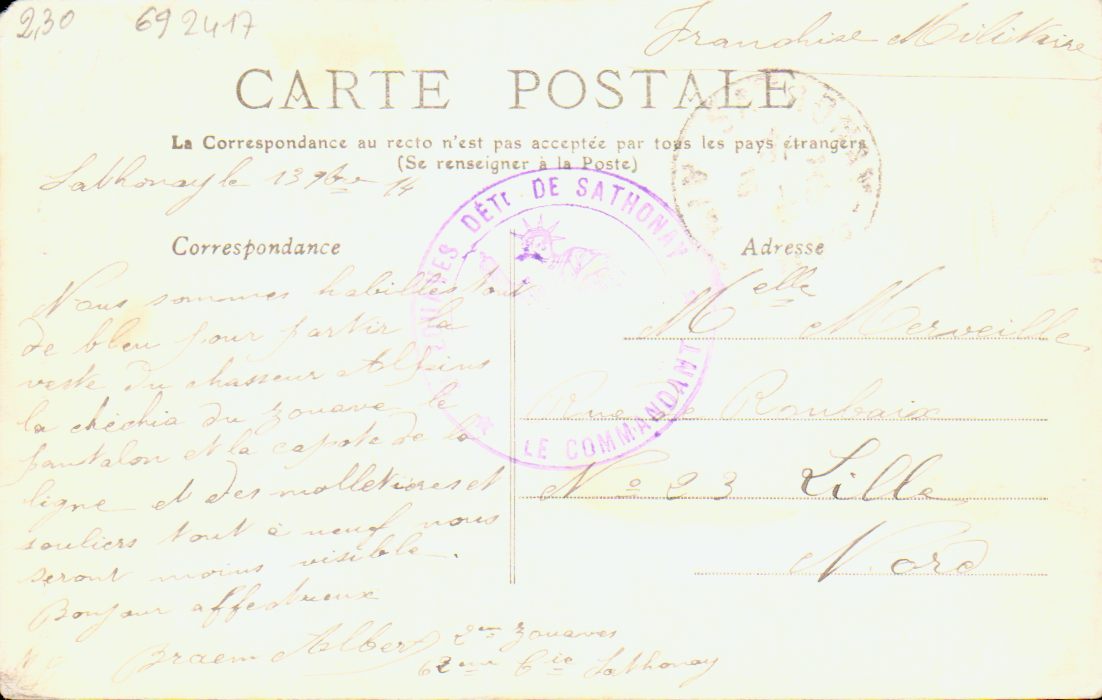 2,30 69 2417
Franchise Militaire
CARTE POSTALE
La Correspondance au recto n'est pas acceptée par tous les pays étrangers
(Se renseigner à la Poste)
Sathonay le 13 9bre 14
ZOUAVES DÉT. DE SATHONAY
LE COMMANDANT
Correspondance
Nous sommes habillés tout
de bleu pour partir la
veste du chasseur Alpins
la chéchia du zouave le
pantalon et la capote de la
ligne et des molletières et
souliers tout à neuf nous
seront moins visible.
Bonjour affectueux
Braem Albert 2me Zouaves
62me Cie Sathonay
Adresse
Melle Merveille
Rue de Roubaix
No 23 Lille
Nord